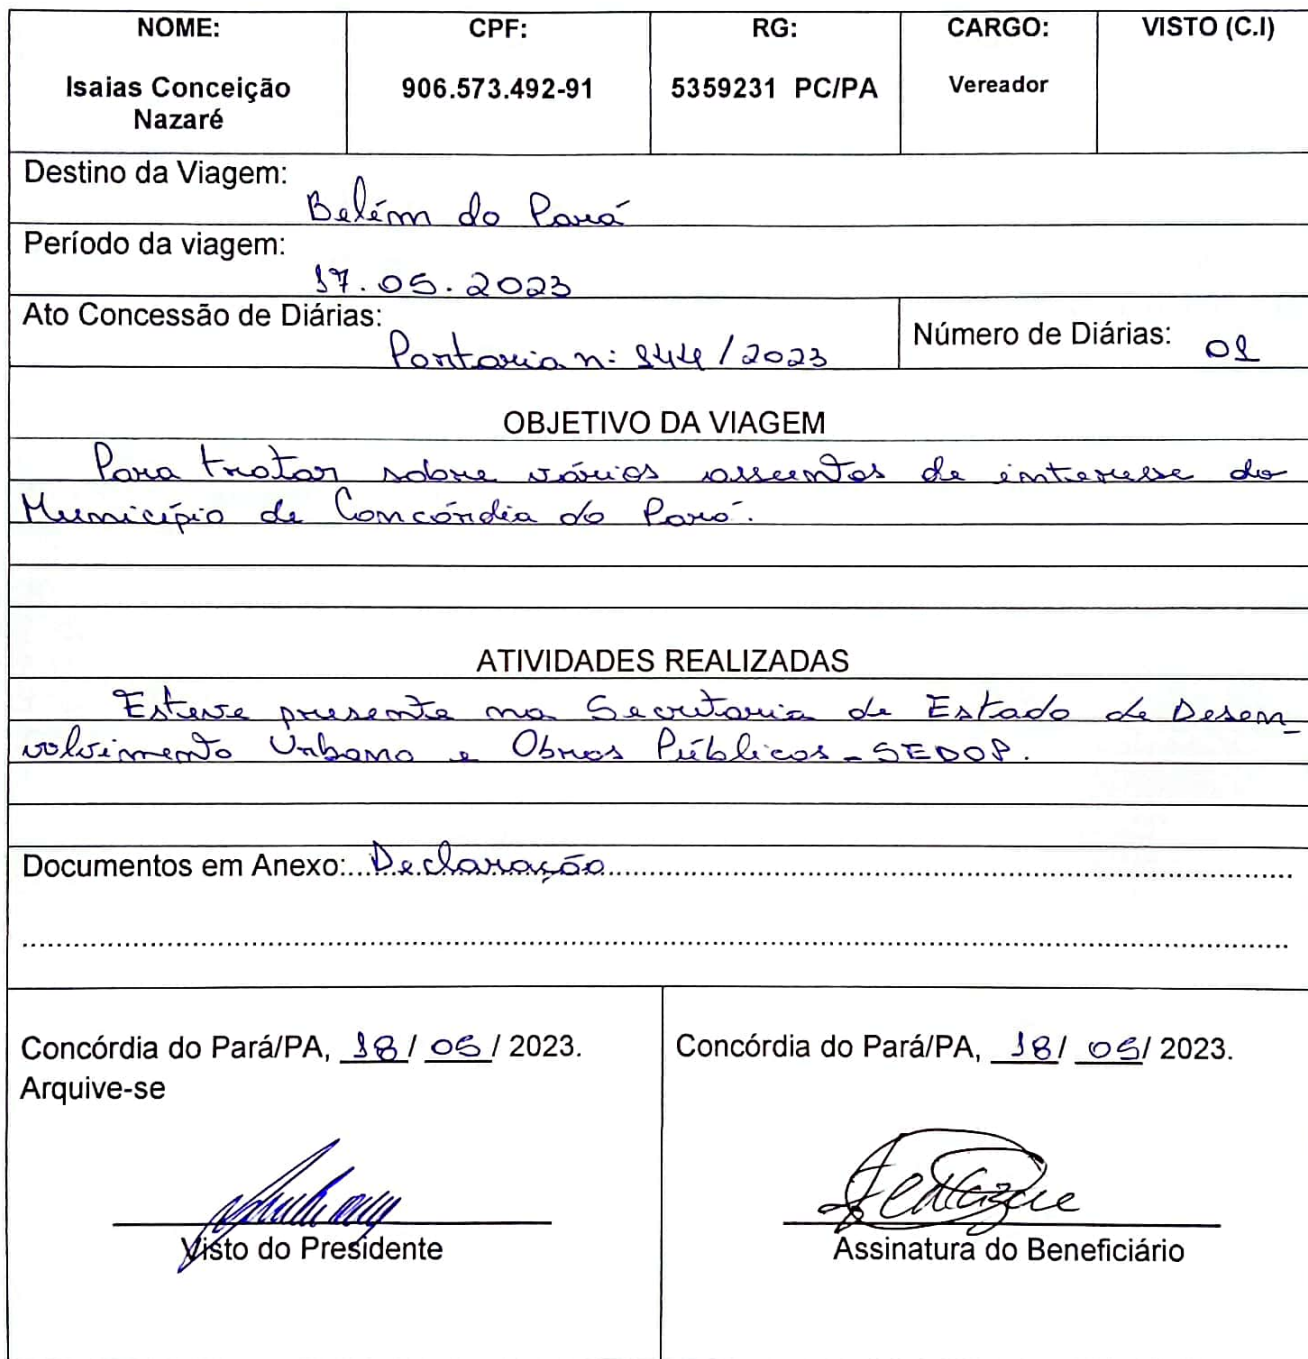 NOME: CPF: RG: CARGO: VISTO (C.I)
Isaias Conceição 906.573.492-91 5359231 PC/PA Vereador
Nazaré
Destino da Viagem:
Belém do Pará
Período da viagem:
17.05.2023
Ato Concessão de Diárias:
Portaria n: 144/2023
Número de Diárias: 01
OBJETIVO DA VIAGEM
Para tratar sobre vários assuntos de interesse do
Município de Concórdia do Pará.
ATIVIDADES REALIZADAS
Esteve presente na Secretaria de Estado de Desen-
volvimento Urbano e Obras Públicas - SEDOP.
Documentos em Anexo:...Declaração...
Concórdia do Pará/PA, 18/ 05 / 2023.
Arquive-se
Visto do Presidente
Concórdia do Pará/PA, 18/ 05/ 2023.
Assinatura do Beneficiário